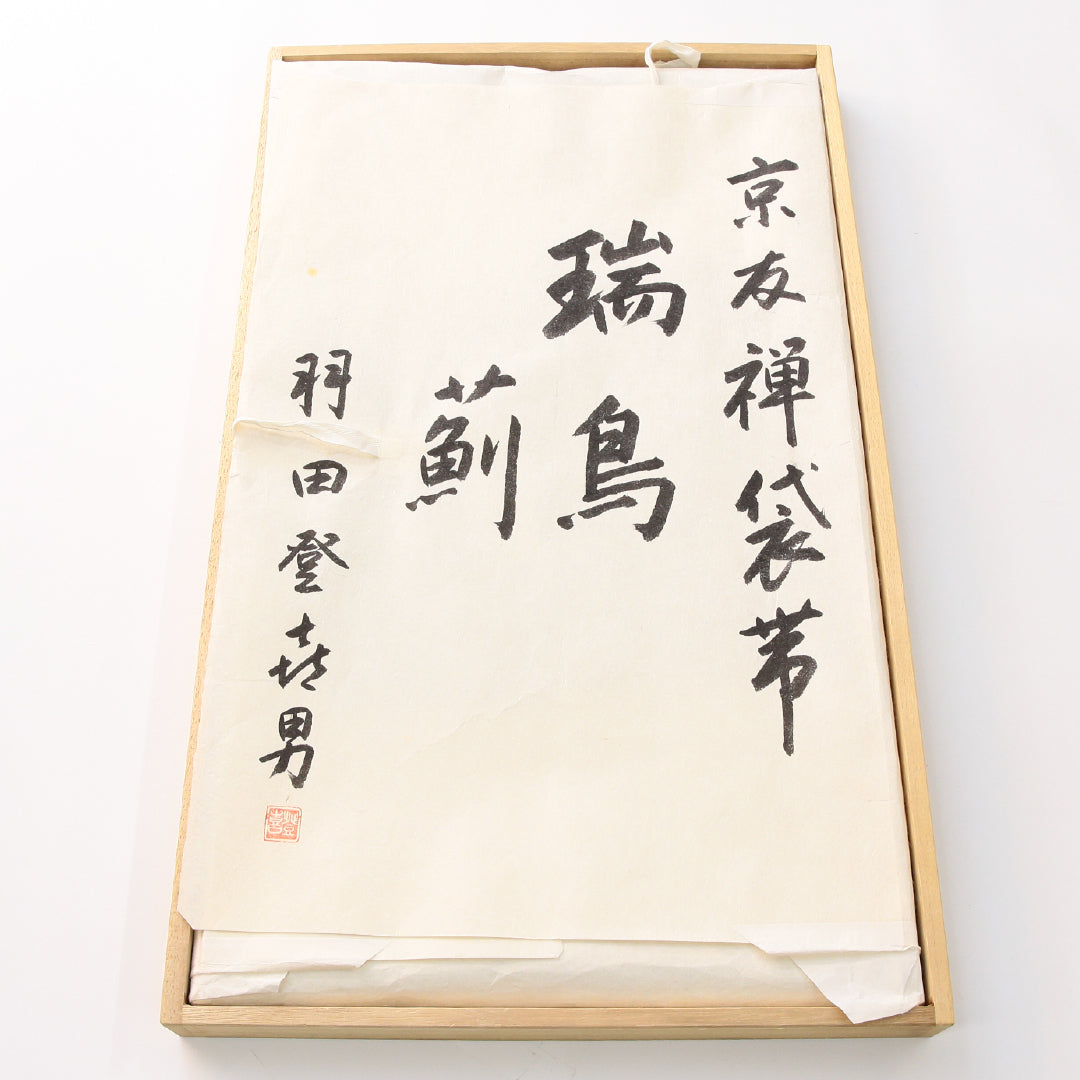 京友禅袋帯
瑞鳥
薊
羽田登喜男
登喜